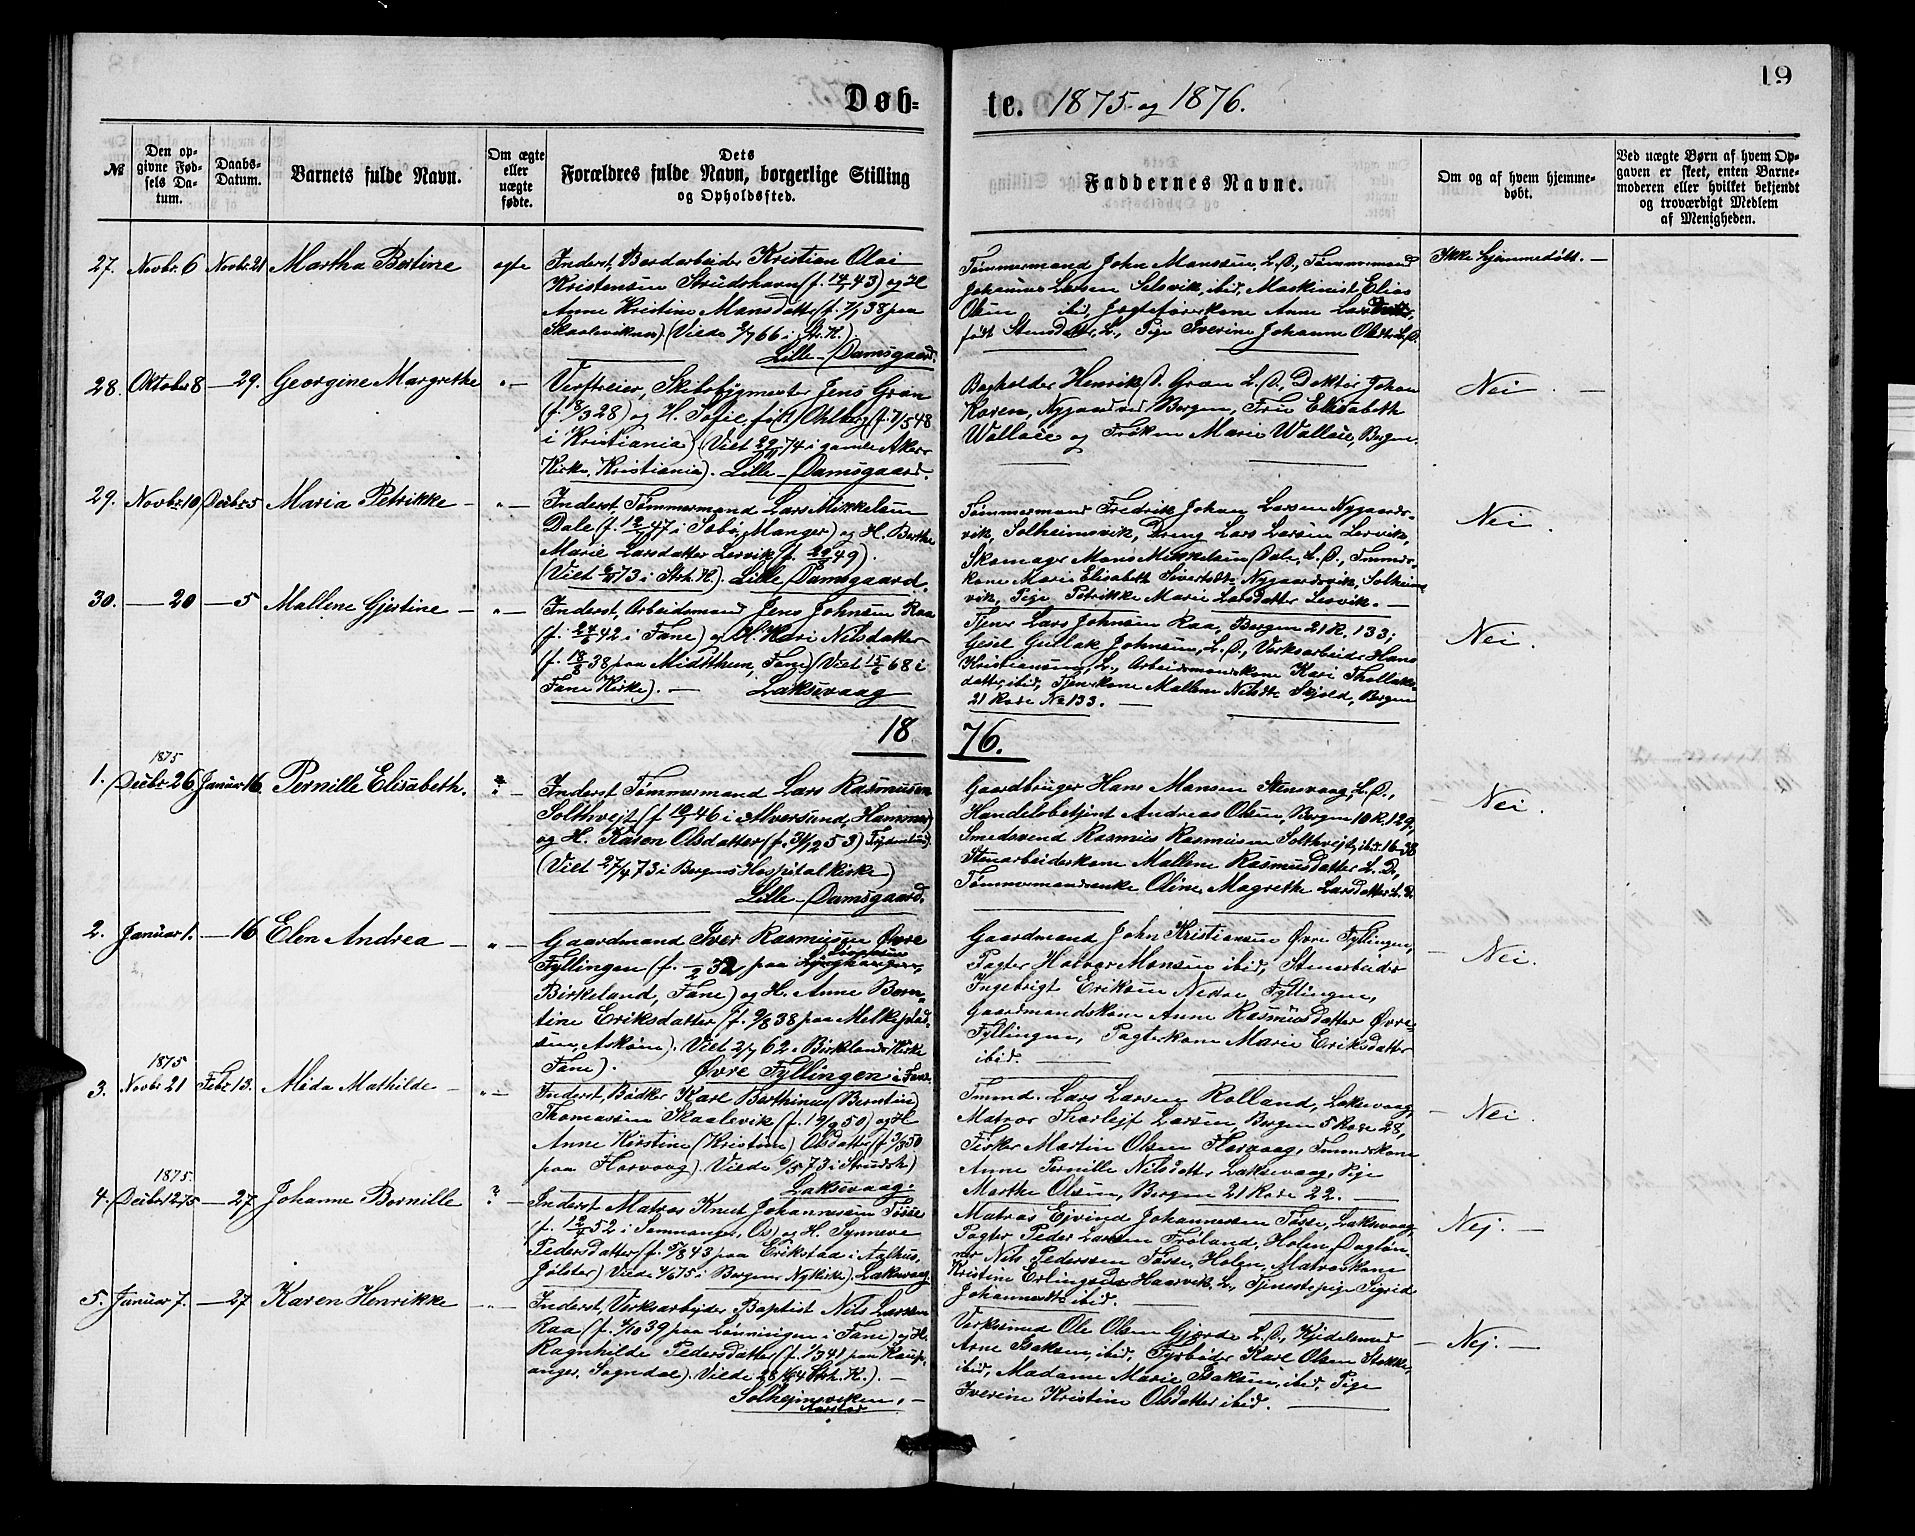 19
Døb-
te. 1875 og 1876.
№
Den op-
givne Fød-
sels Da-
tum.
Daabs-
Datum.
Barnets fulde Navn.
Om ægte
eller
uægte
fødte.
Dets
Forældres fulde Navn, borgerlige Stilling
og Opholdssted.
Faddernes Navne.
Om og af hvem hjemme-
døbt.
Ved uægte Børn af hvem Op-
gaven er skeet, enten Barne-
moderen eller hvilket bekjendt
og troværdigt Medlem
af Menigheden.
27. Novbr. 6 Novbr. 21 Martha Bertine ægte
Inderst, Bordarbeider Kristian Olai
Kristensen Strudshavn (f. 14/1 43) og H.
Anne Kristine Mansdatter (f. 7/1 38 paa
Skaaleviken) (Viede 2/7 66 i Str. K.)
Lille-Damsgaard.
Tømmermand John Monsen, L. D., Tømmermand
Johannes Larsen Selsvik, ibid, Maskinist Elias
Olsen ibid, Jægteførerkone Anne
født Stensdatter, L., Pige Iverine Johanne Olsdtr L. D.
Ikke hjemmedøbt. —
28. Oktober 8 — 29. Georgine Margrethe " —
Verfteier, Skibsbygmester Jens Gran
(f. 18/3 28) og H. Sofie, født Ohlberg (f. 7/5 48
i Kristiania) (Viet 29/11 74 i gamle Akers
Kirke, Kristiania). Lille-Damsgaard.
Bogholder Henrik D. Gran L. D., Doktor Johan
Koren, Nygaard ved Bergen, Frue Elisabeth
Wallace og Frøken Marie Wallace, Bergen.
Nei . —
29. Novbr. 10 Decbr. 5 Maria Petrikke — " —
Inderst, Tømmermand Lars Mikkelsen
Dale (f. 12/ 47 i Sæbø, Manger) og H. Berthe
Marie Larsdatter Lervik (f. 29/8 49).
(Viet 73 i Strh. K.). Lille Damsgaard.
Tømmermand Fredrik Johan Larsen Nygaards-
vik, Solheimsvik, Dreng Lars Larsen Lervik,
Skomager Mons Mikkelsen Dale, L. D., Tmmds-
kone Marie Elisabeth Sivertsdtr Nygaardsvik, Solheims-
vik, Pige Petrikke Marie Larsdatter Lervik. —
Nei .
30. — 20 — 5 Mallene Gjertine — " —
Inderst, Arbeidsmand Jens Johnsen Raa
(f. 24/ 42 i Fane) og H. Kari Nilsdatter
(f. 18/8 38 paa Midttun, Fane) (Viet 15/6 68 i
Fane Kirke). — Laksevaag
Tjener Lars Johnsen Raa, Bergen 21 R. 133;
Gesel Gullak Johnsen, L. D., Verksarbeider Hans
Kristiansen, L., Arbeidsmandskone Kari Thollaks-
datter, ibid, Tjenerkone Mallene Nilsdtr Skjold, Bergen
21 Rode No 133. —
Nei .
18 76.
1875
1. Decbr. 26 Januar 16. Pernille Elisabeth. " —
Inderst Tømmermand Lars Rasmusen
Solthvejt (f. 10/ 46 i Alversund, Hammer)
og H. Karen Olsdatter (f. 31/12 53)
(Viet 27/4 73 i Bergens Hospitalkirke)
Lille-Damsgaard.
Gaardbruger Hans Monsen Stensvaag, L. D.,
Handelsbetjent Andreas Olsen, Bergen 10 R. 129,
Smedsvend Rasmus Rasmusen Solthvejt, ibid 16-38
Stenarbeiderkone Mallene Rasmusdatter L. D.
Tømmermandsenke Oline Magrethe Larsdatter L. D.
Nei .
2. Januar 1. — 16 Elen Andrea — " —
Gaardmand Iver Rasmusen Øvre
Fyllingen (f. 32 paa
Birkeland, Fane) og H. Anne Bern-
tine Eriksdatter (f. 9/8 38 paa Melkeplad-
sen, Askøen). Viet 2/7 62 i Birklands Kirke
Fane). Øvre Fyllingen i Fane.
Gaardmand John Kristiansen Øvre Fyllingen,
Pagter Halvor Monsen ibid, Stenarbeider
Ingebrigt Eriksen Nedre Fyllingen,
Gaardmandskone Anne Rasmusdatter Øvre-
Fyllingen, Pagterkone Marie Eriksdatter
ibid. —
— Nei.
1875
3. Novbr. 21 Febr. 13. Alida Mathilde — " —
Inderst, Bødker Karl Berthinus (Berntin)
Thomassen Skaalevik (f. 19/9 50) og H.
Anne Kirstine (Kristine) Olsdatter (f. 9/3 50
paa Harvaag). Viede 6/5 73 i Strudsh.)
Laksevaag.
Tmmd. Lars Larsen Rolland, Laksevaag,
Matros Thorlejf Larsen, Bergen 5 Rode 28,
Fisker Martin Olsen Harvaag, Tmmdskone
Anne Pernille Nilsdatter Laksevaag, Pige
Marthe Olsen, Bergen 21 Rode 22. —
— Nei .
1875.
4. Decbr. 12 75 — 27 Johanne Bernille ? —
Inderst Matros Knut Johannessen Tøsse
(f. 12/ 52 i Samnanger, Os) og H. Synneve
Pedersdatter (f. 5/8 43 paa Erikstad i Aalhus,
Jølster) Viede 4/6 75 i Bergens Nykirke). Laksevaag
Matros Ejvind Johannessen Tøsse, Laksevaag,
Pagter Peder Larsen Frøland, Holen, Dagløn-
ner Nils Pederssen Tøsse, Holen, Matroskone
Kristine Erlingsdtr Haarvik, L., Tjenestepige Sigrid
Johannesdtr ibid. —
Nej. —
5. Januar 7. — 27 Karen Henrikke " —
Inderst, Verksarbejder Baptist Nils Larsen
Raa (f. 4/10 39 paa Lønningen i Fane) og H.
Ragnhilde Pedersdatter (f. 1/3 41 paa Kaup-
anger, Sogndal). Viede 28/ 64 Strh. K.). —
Solhejmsviken, —
Aarstad
Verksmed Ole Olsen Gjerde L. D., Kjedelsmed
Arne Bakken, ibid, Fyrbøder Karl Olsen Stokke,
ibid, Madame Marie Bakken, ibid, Pige
Iverine Kristine Olsdatter ibid. —
— Nej. —